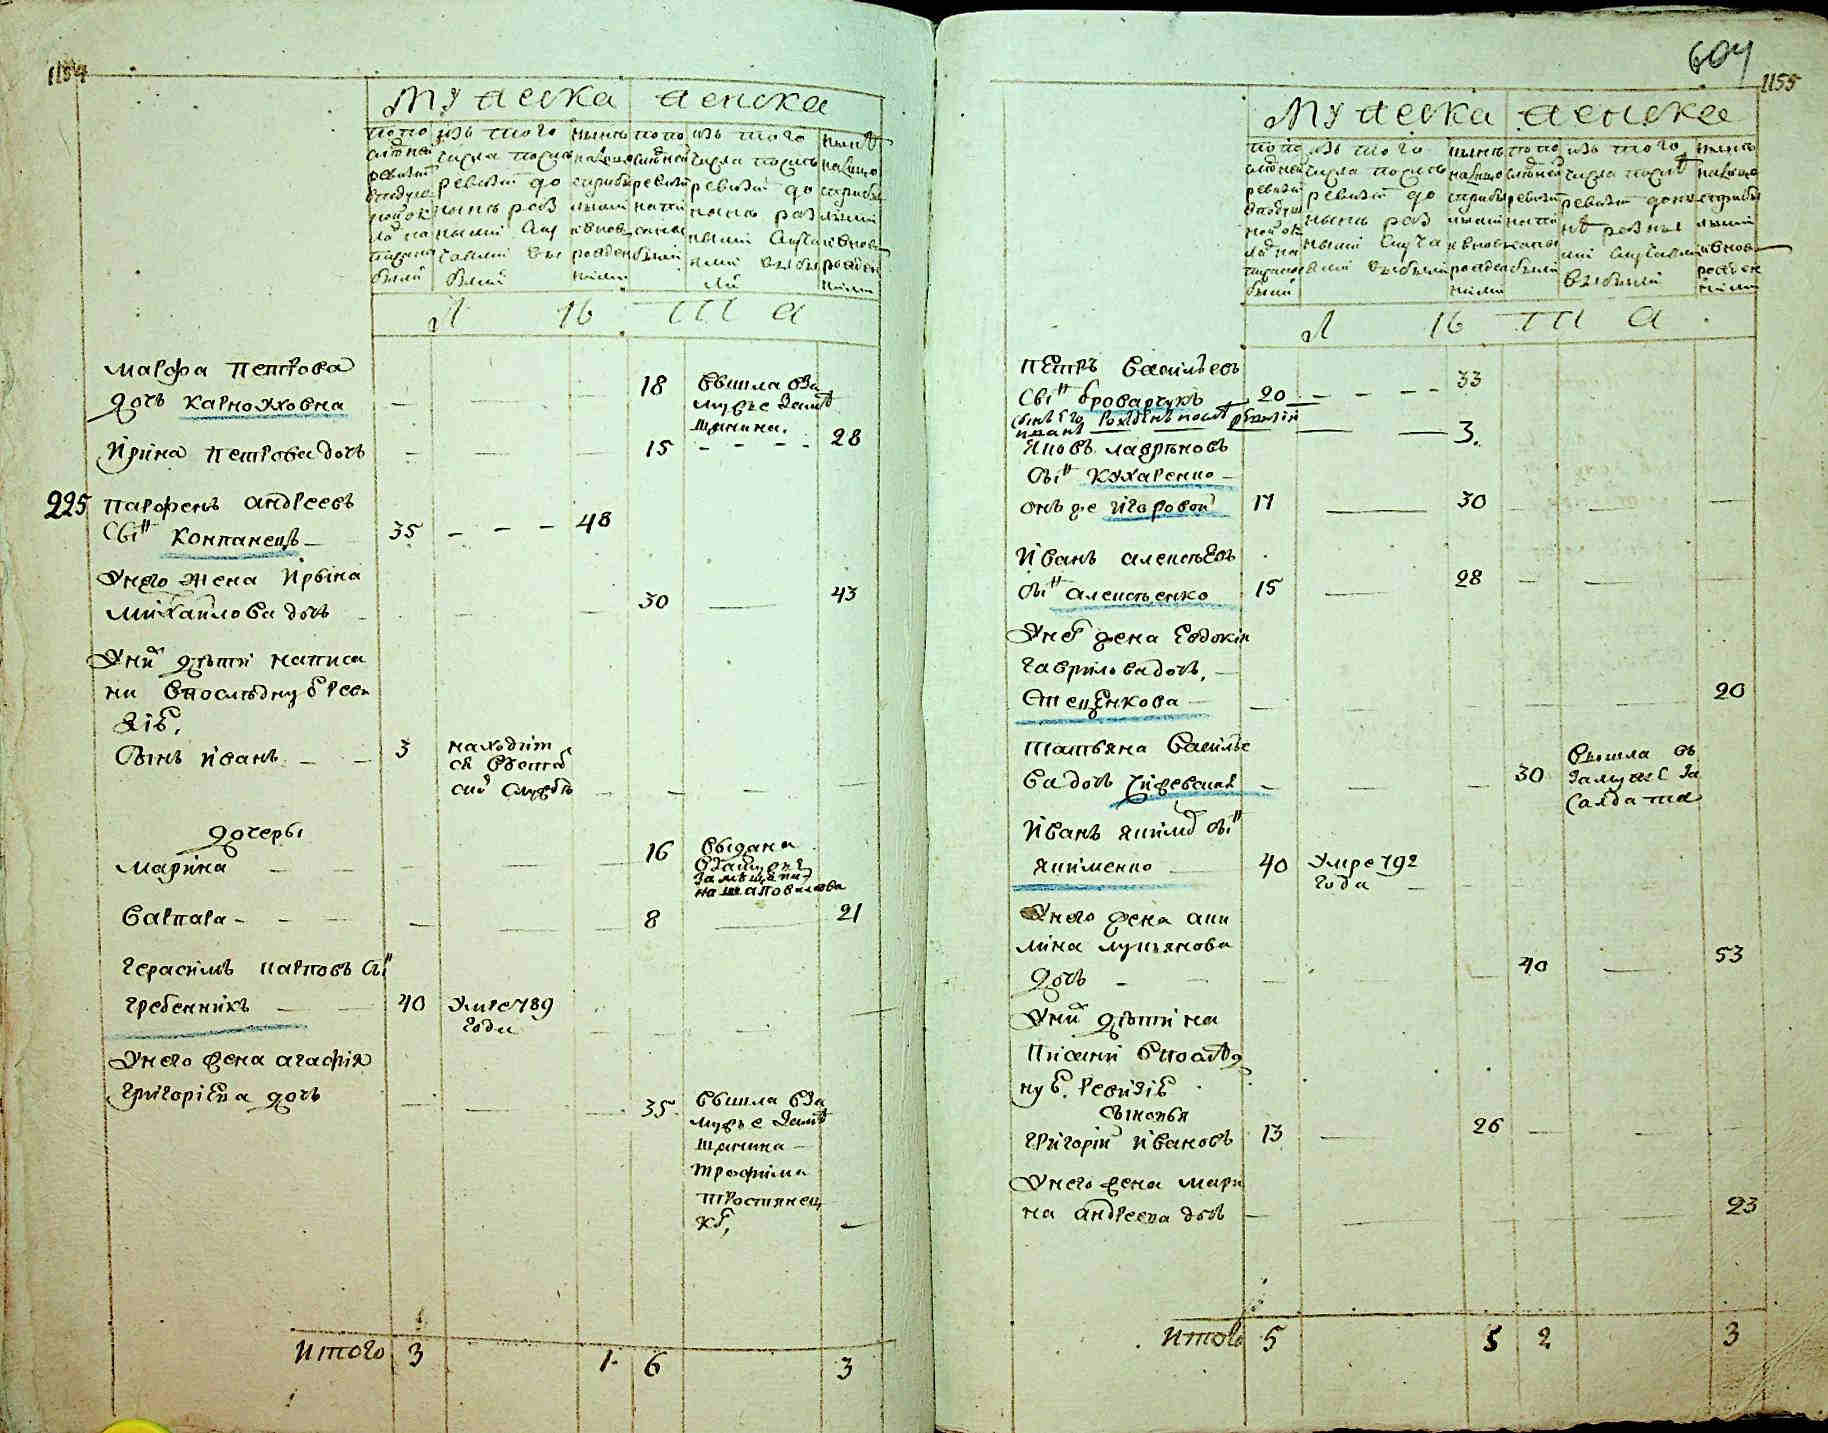 1154
Мужеска женска
попо
следней
ревизии
в подуш
ной ок
лад на
писано
было
изъ того
числа после
ревизии до
ныне раз
ными слу
чаями вы
было
ныне
на лицо
с прибы
лыми
и вновь
рожден
ными
попо
следней
ревизии
напи
саны
было
изъ того
числа после
ревизии до
ныне раз
ными случа
ями выбы
ло
ныне
на лицо
с прибы
лыми
и вновь
рожден
ными
Л Ѣ Т А
Марфа Петрова
дочь Карножховна — — 18 вышла вза
мужье за мѣ
щанина.
Ирина Петрова дочь — — 15 - - - - 28
225 Парфенъ Андреевъ
сынъ Компанецъ — 35 - - - 48
У него жена Ирына
Михайлова дочь — 30 — 43
У нихъ дѣти написа
ни в послѣдную реви
зію,
Сынъ Иванъ — — 3 находит
ся в воен
ной службѣ — — — —
дочеры
Марина — — 16 выдана
в замужье
за мѣщани
на Шаповалова
Варпара - - - — 8 — 21
Герасимъ Карповъ сынъ
Гребенникъ — — 40 Умре 789
года — — —
У него жена Агафия
Григоріева дочь — — — 35 вышла вза
мужье за мѣ
щанина —
Трофима
Тростянец
ко, —
Итого 3 1. 6 3
604
1155
Мужеска женска
попо
следней
ревизии
в подуш
ной ок
лад на
писано
было
изъ того
числа после
ревизии до
ныне раз
ными случа
ями выбыли
ныне
на лицо
с прибы
лыми
и вновь
рожден
ными
попо
следней
ревизии
напи
саны
были
изъ того
числа после
ревизии доны
нѣ разны
ми случаями
выбыли
ныне
на лицо
с прибы
лыми
и вновь
рожден
ными
Л Ѣ Т А
Петръ Васильевъ
сынъ Броварчукъ — 20 - - - - 33
сынъ его рожденъ после ревизіи
Иванъ — — — 3.
Яковъ Лавреновъ
сынъ Кухаренко —
онъ же Игаровой 17 — 30 — — —
Иванъ Алексѣевъ
сынъ Алексѣенко 15 — 28 — — —
У него жена Евдокія
Гаврилова дочь, —
Стеценкова — — — — — — 20
Татьяна Василье
ва дочь Сижевская — — — 30 вышла въ
замужье за
салдата
Иванъ Якимовъ сынъ
Якименко — 40 Умре 792
года — — — —
У него жена Аки
лина Лукьянова
дочь - — — — — 40 — 53
У нихъ дѣти на
писаны в послѣд
ную ревизію
сыновья
Григорій Ивановъ 13 — 26 — — —
У него жена Мари
на Андреева дочь — — — — — 23
Итого 5 5 2 3